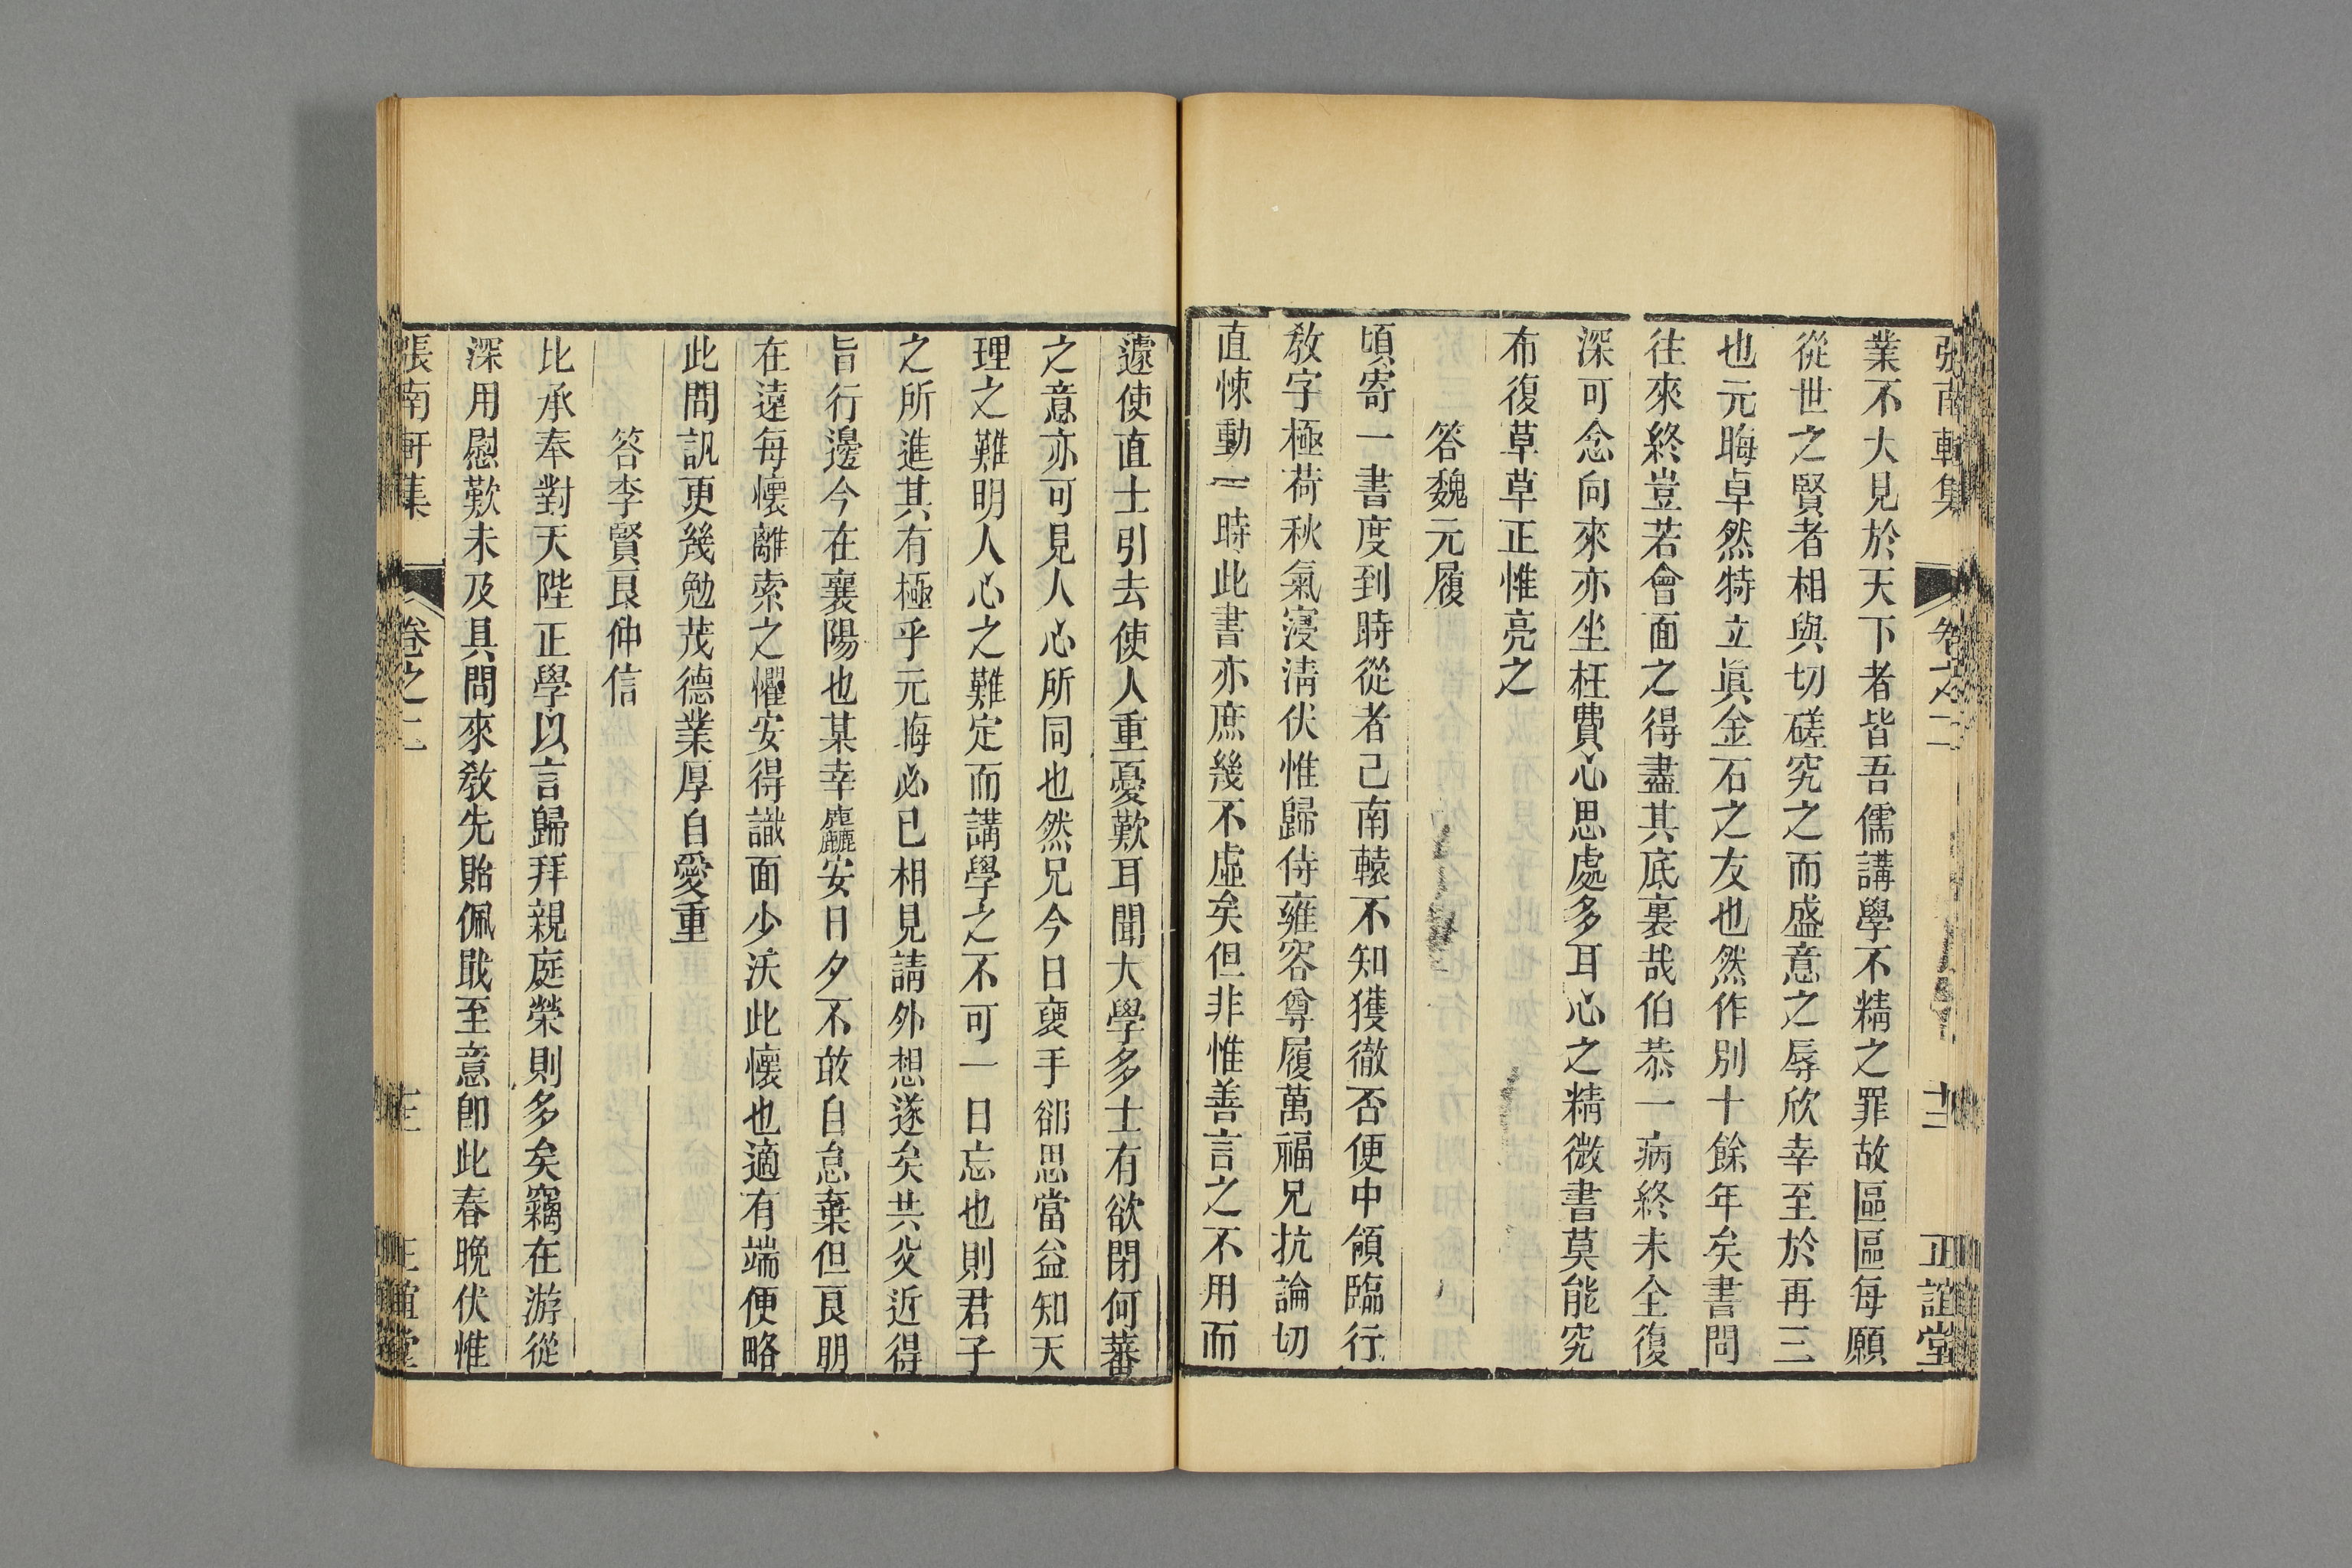 張南軒集 卷之二 十二 正誼堂
業不大見於天下者皆吾儒講學不精之罪故區區每願
從世之賢者相與切磋究之而盛意之辱欣幸至於再三
也元晦卓然特立眞金石之友也然作別十餘年矣書問
往來終豈若會面之得盡其底裏哉伯恭一病終未全復
深可念向來亦坐枉費心思處多耳心之精微書莫能究
布復草草正惟亮之
答魏元履
頃寄一書度到時從者已南轅不知獲徹否便中領臨行
教字極荷秋氣寖淸伏惟歸侍雍容尊履萬福兄抗論切
直悚動一時此書亦庶幾不虛矣但非惟善言之不用而
遽使直士引去使人重憂歎耳聞大學多士有欲閉何蕃
之意亦可見人心所同也然兄今日褏手卻思當益知天
理之難明人心之難定而講學之不可一日忘也則君子
之所進其有極乎元晦必已相見請外想遂矣共父近得
旨行邊今在襄陽也某幸麤安日夕不敢自怠棄但良朋
在遠每懷離索之懼安得識面少沃此懷也適有端便略
此問訊更幾勉茂德業厚自愛重
答李賢良仲信
比承奉對天陛正學以言歸拜親庭榮則多矣竊在游從
深用慰歎未及具問來教先貽佩戢至意卽此春晚伏惟
張南軒集 卷之二 正誼堂